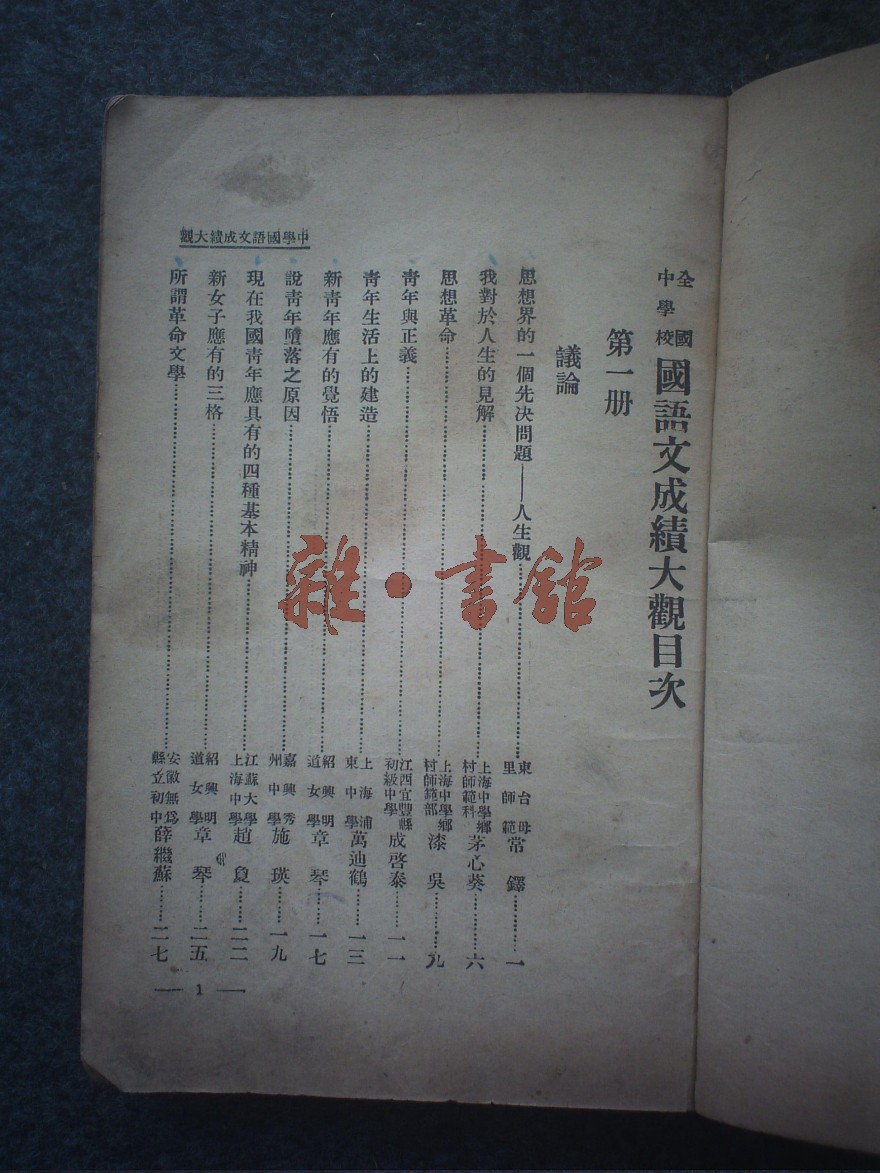 全國中學校國語文成績大觀目次
第一册
議論
思想界的一個先決問題——人生觀⋯⋯東台母里師範 常鐸⋯⋯一
我對於人生的見解⋯⋯上海中學鄉村師範科 茅心葵⋯⋯六
思想革命⋯⋯上海中學鄉村師範部 漆吳⋯⋯九
青年與正義⋯⋯江西宜豐縣初級中學 成啓泰⋯⋯一一
青年生活上的建造⋯⋯上海浦東中學 萬迪鶴⋯⋯一三
新青年應有的覺悟⋯⋯紹興明道女學 章琴⋯⋯一七
說青年墮落之原因⋯⋯嘉興秀州中學 施瑛⋯⋯一九
現在我國青年應具有的四種基本精神⋯⋯江蘇大學上海中學 趙⋯⋯二二
新女子應有的三格⋯⋯紹興明道女學 章琴⋯⋯二五
所謂革命文學⋯⋯安徽無爲縣立初中 薛繼蘇⋯⋯二七
中學國語文成績大觀
— 1 —
雜·書館